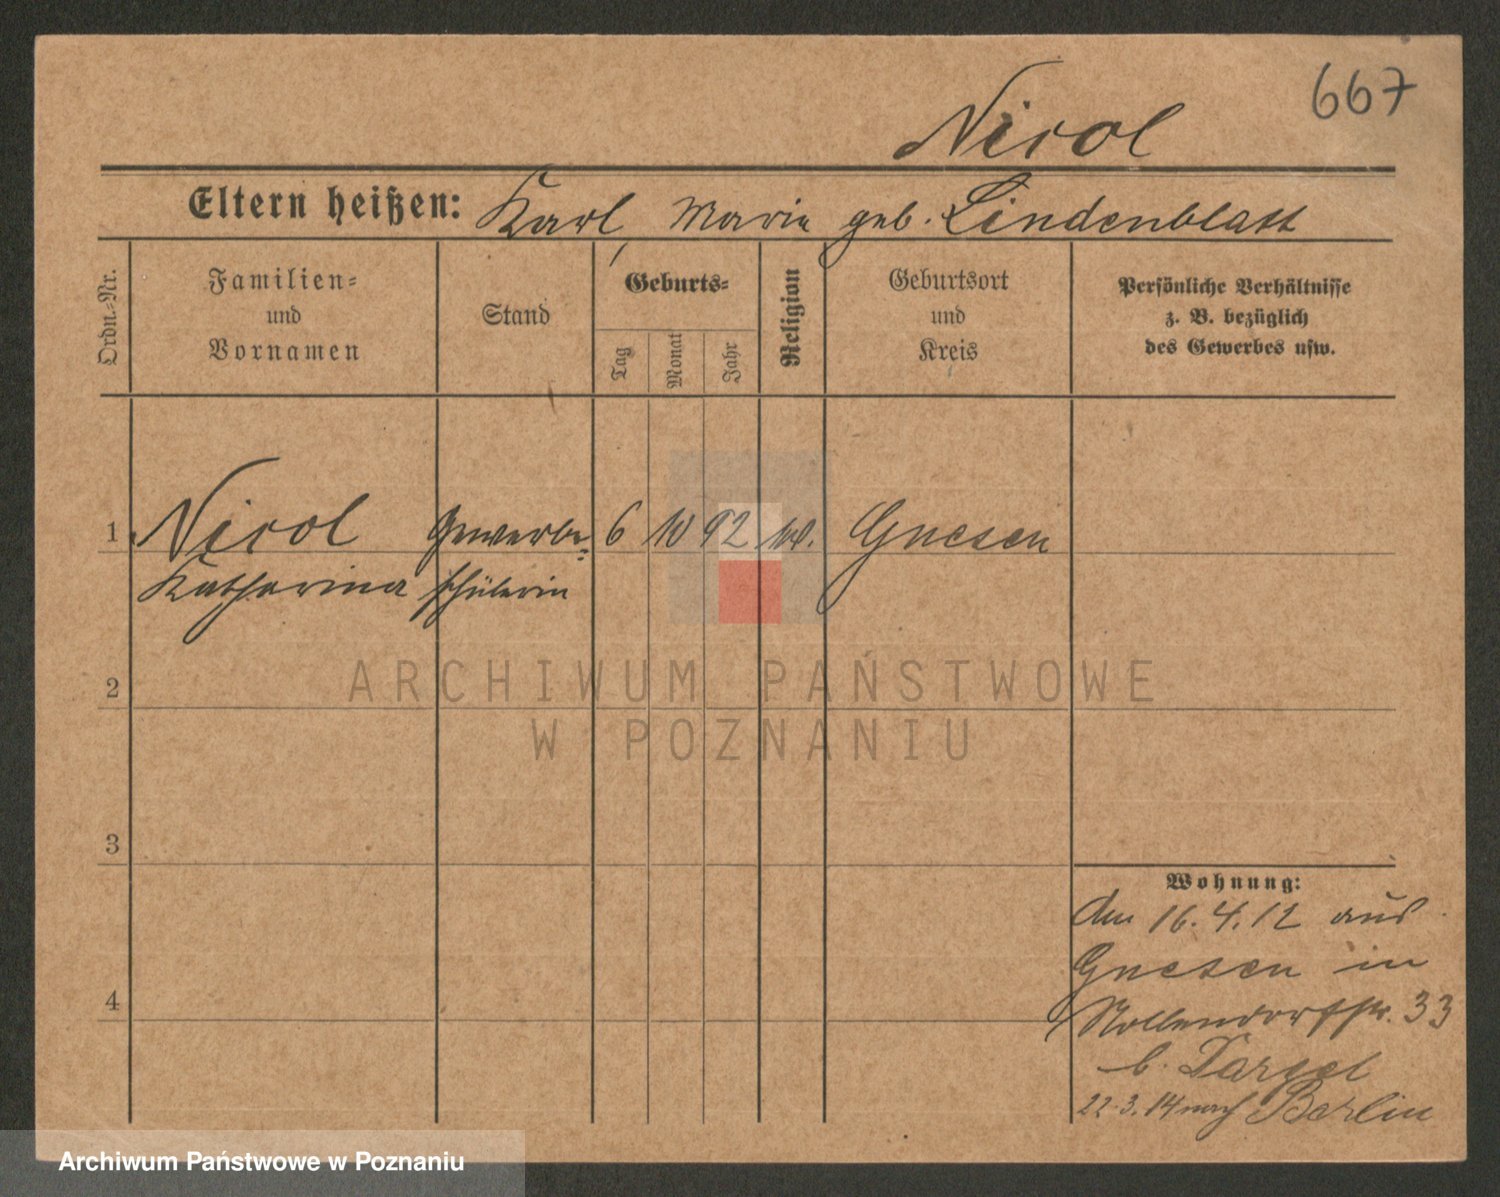 667
Nicol
Eltern heißen: Karl Marie geb. Lindenblatt
Ordn.-Nr.
Familien-
und
Vornamen
Stand
Geburts-
Tag
Monat
Jahr
Religion
Geburtsort
und
Kreis
Persönliche Verhältnisse
z. B. bezüglich
des Gewerbes usw.
1 Nicol Gewerbe- 6 10 92 Gnesen
Katharina schülerin
2
ARCHIWUM PAŃSTWOWE
W POZNANIU
3
Wohnung:
den 16.4.12 aus
Gnesen in
4
Nollendorfstr. 33
b. Dargel
22.3.14 nach Berlin
Archiwum Państwowe w Poznaniu